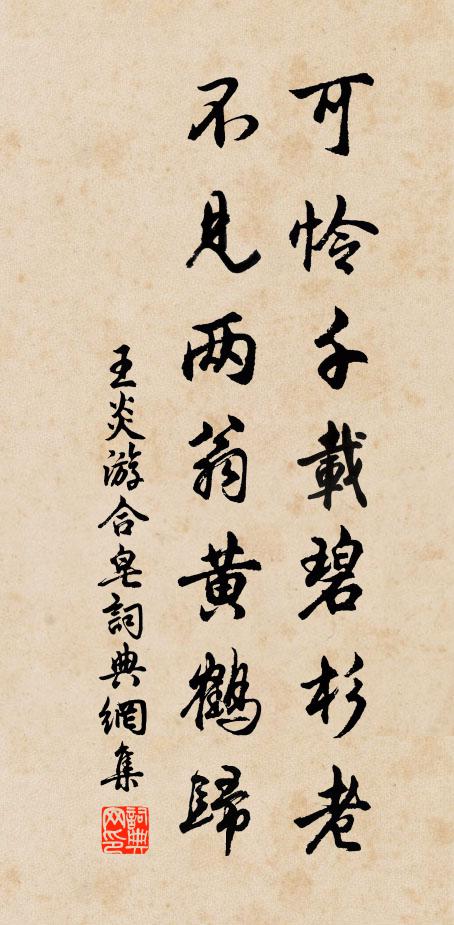 可怜千載碧杉老
不見两翁黄鶴歸
王炎游合皂詞典網集
詞典网印